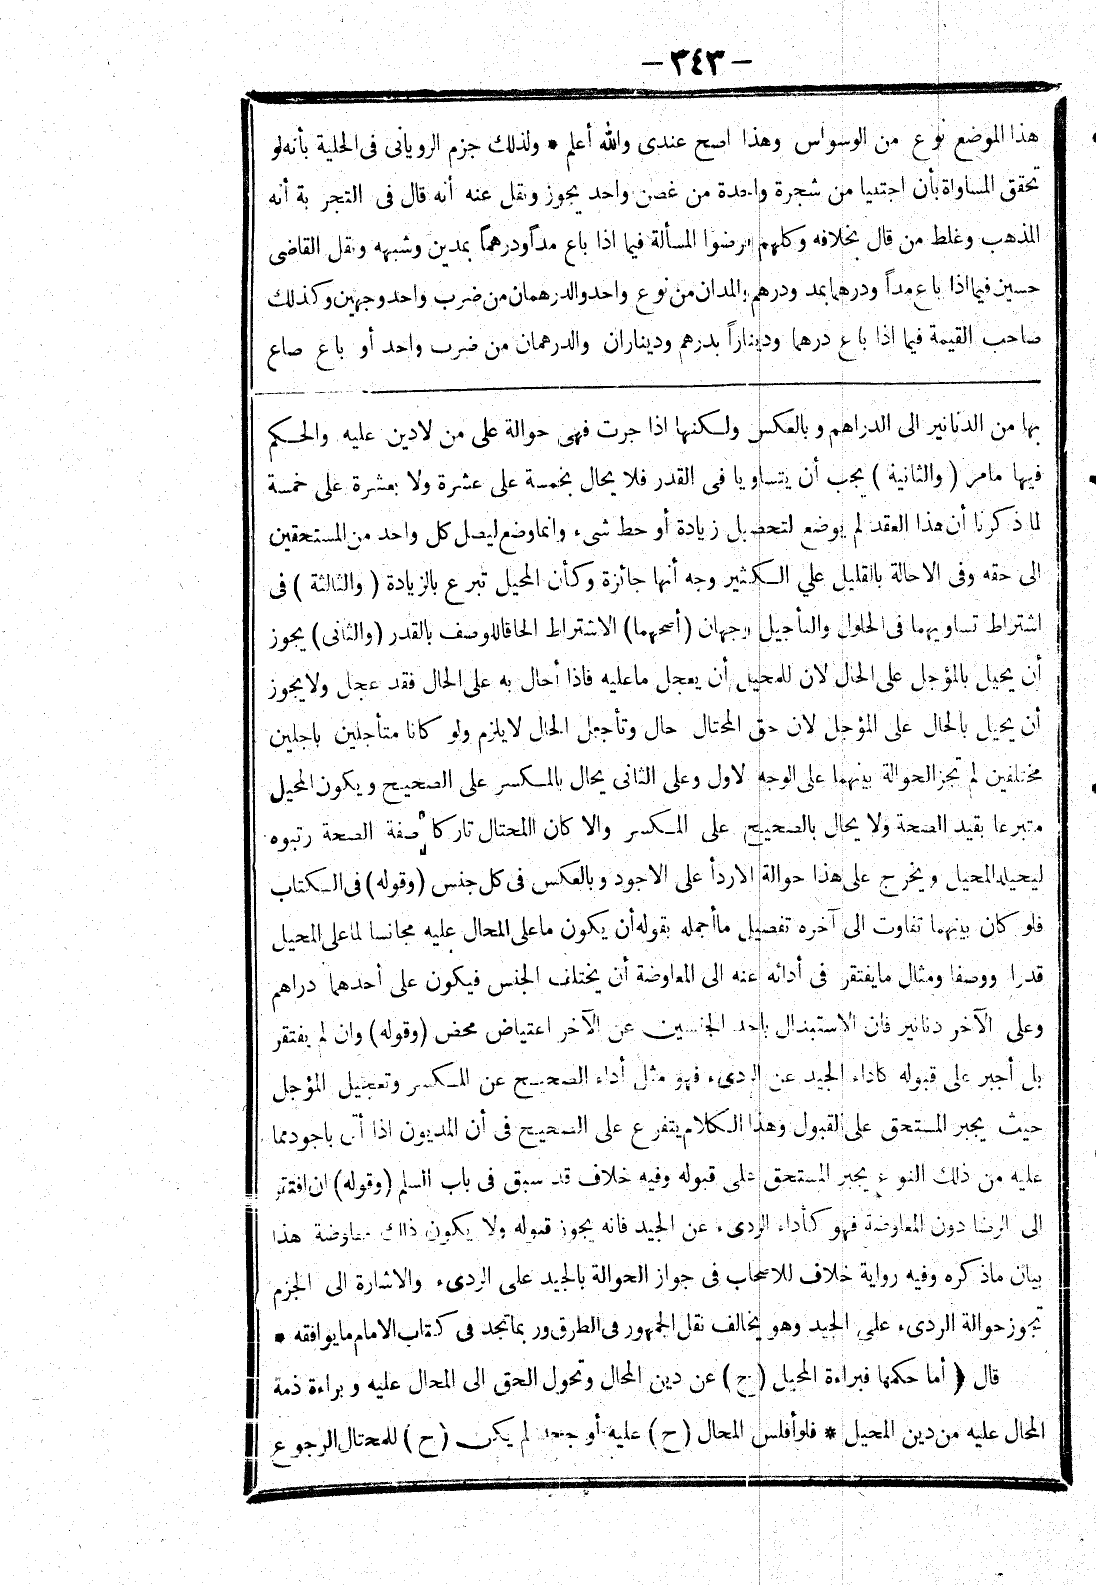 — ٣٤٣ —
هذا الموضع نوع من الوسواس وهذا اصح عندى والله أعلم * ولذلك جزم الرويانى فى الحلية بأنه لو
تحقق المساواة بأن اجتنيا من شجرة واحدة من غصن واحد يجوز ونقل عنه أنه قال فى التجربة أنه
المذهب وغلط من قال بخلافه وكلهم فرضوا المسألة فيما اذا باع مداً ودرهماً بمدين وشبهه ونقل القاضى
حسين فيما اذا باع مداً ودرهما بمد ودرهم والمدان من نوع واحد والدرهمان من ضرب واحد وجهين وكذلك
صاحب القيمة فيما اذا باع درهما وديناراً بدرهم وديناران والدرهمان من ضرب واحد أو باع صاع
بها من الدنانير الى الدراهم وبالعكس ولكنها اذا جرت فهى حوالة على من لادين عليه والحكم
فيها مامر (والثانية) يجب أن يتساويا فى القدر فلا يحال بخمسة على عشرة ولا بعشرة على خمسة
لما ذكرنا أن هذا العقد لم يوضع لتحصيل زيادة أو حط شىء وانما وضع ليصل كل واحد من المستحقين
الى حقه وفى الاحالة بالقليل علي الكثير وجه أنها جائزة وكأن المحيل تبرع بالزيادة (والثالثة) فى
اشتراط تساويهما فى الحلول والتأجيل وجهان (أصحهما) الاشتراط الحاقا للوصف بالقدر (والثانى) يجوز
أن يحيل بالمؤجل على الحال لان للمحيل أن يعجل ماعليه فاذا أحال به على الحال فقد عجل ولايجوز
أن يحيل بالحال على المؤجل لان حق المحتال حال وتأجيل الحال لايلزم ولو كانا متأجلين باجلين
مختلفين لم تجز الحوالة بينهما على الوجه لاول وعلى الثانى يحال بالمكسر على الصحيح ويكون المحيل
متبرعا بقيد الصحة ولا يحال بالصحيح على المكسر والا كان المحتال تاركا صفة الصحة رتبوه
ليحيله المحيل ويخرج على هذا حوالة الاردأ على الاجود وبالعكس فى كل جنس (وقوله) فى الكتاب
فلو كان بينهما تفاوت الى آخره تفصيل ماأجمله بقوله أن يكون ماعلى المحال عليه مجانسا لماعلى المحيل
قدرا ووصفا ومثال مايفتقر فى أدائه عنه الى المعاوضة أن يختلف الجنس فيكون على أحدهما دراهم
وعلى الآخر دنانير فان الاستبدال باحد الجنسين عن الآخر اعتياض محض (وقوله) وان لم يفتقر
بل أجبر على قبوله كاداء الجيد عن الردىء فهو مثل أداء الصحيح عن المكسر وتعجيل المؤجل
حيث يجبر المستحق على القبول وهذا الكلام يتفرع على الصحيح فى أن المديون اذا أتى باجود مما
عليه من ذلك النوع يجبر المستحق على قبوله وفيه خلاف قد سبق فى باب السلم (وقوله) ان افتقر
الى الرضا دون المعاوضة فهو كأداء الردىء عن الجيد فانه يجوز قبوله ولا يكون ذلك معاوضة هذا
بيان ماذكره وفيه رواية خلاف للاصحاب فى جواز الحوالة بالجيد على الردىء والاشارة الى الجزم
تجوز حوالة الردىء على الجيد وهو يخالف نقل الجمهور فى الطرق وربما تجد فى كتاب الامام مايوافقه *
قال ﴿ أما حكمها فبراءة المحيل (ح) عن دين المحال وتحول الحق الى المحال عليه وبراءة ذمة
المحال عليه من دين المحيل * فلو أفلس المحال (ح) عليه أو جحد لم يكن (ح) للمحتال الرجوع